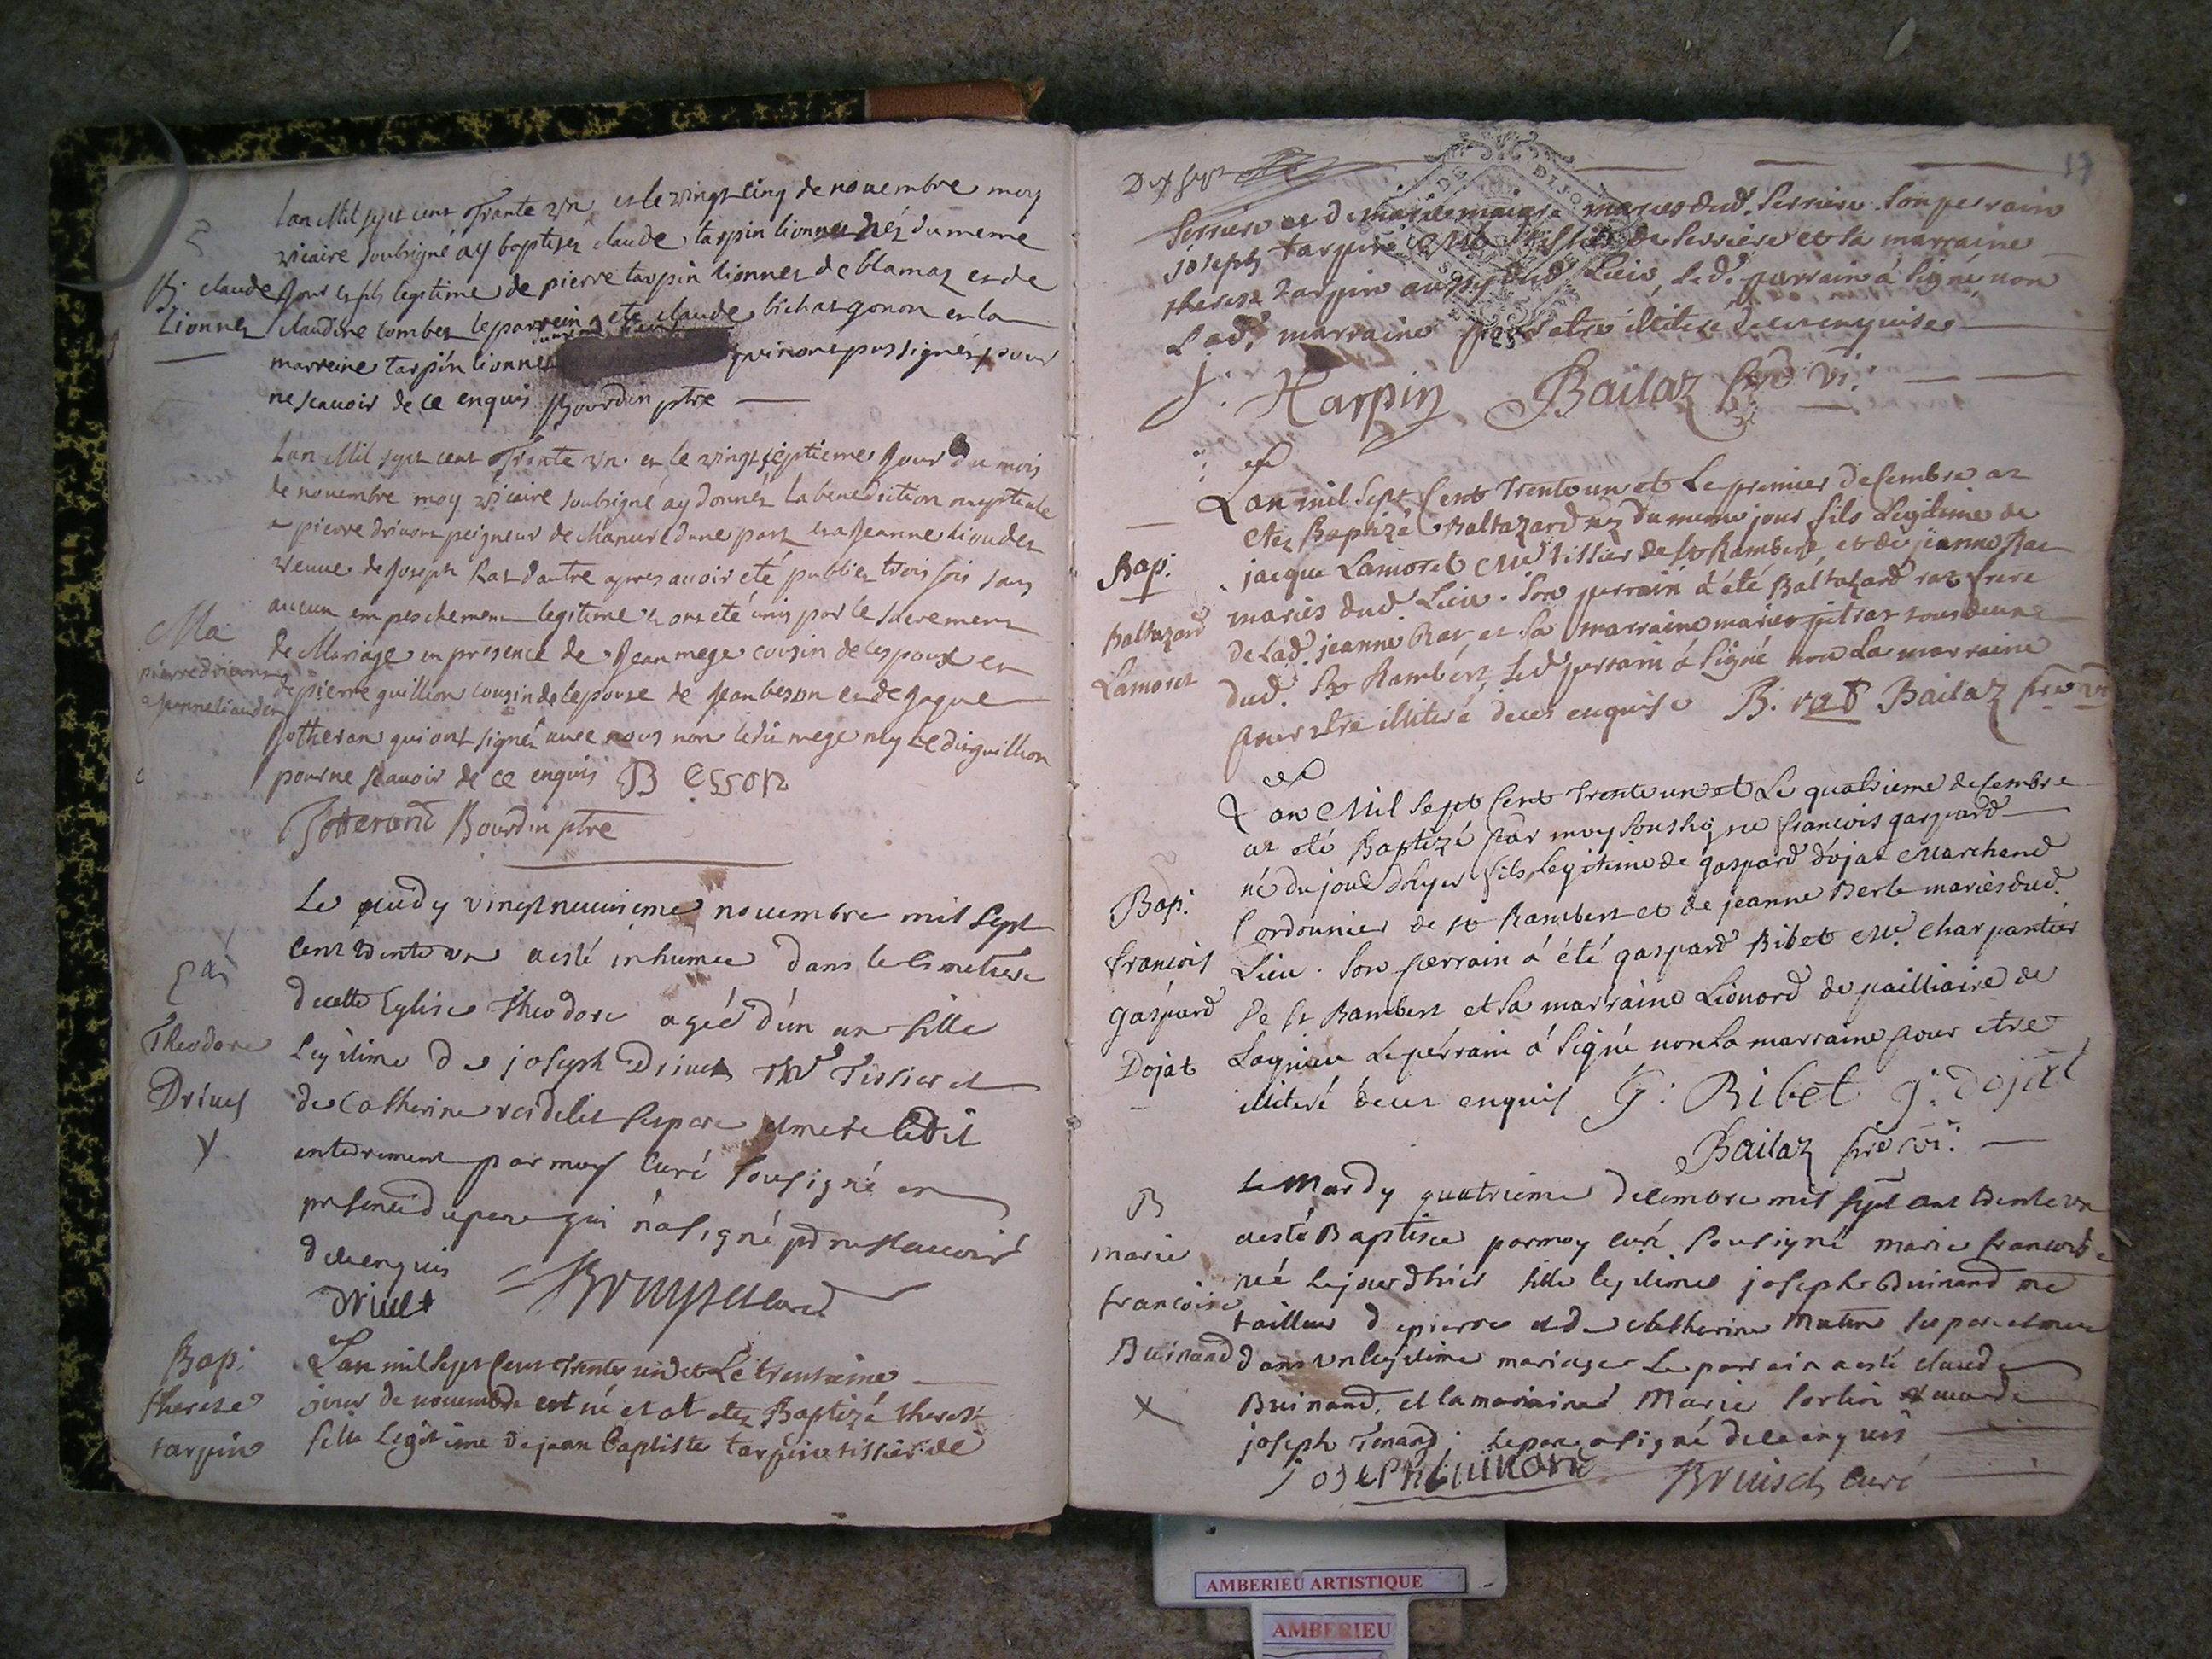 Lan Mil sept cent Trante un et le vingt cinq de nouembre moy
vicaire soubsigné ay baptisez claude tarpin lionnet néz du meme
B: claude Jour et fils legitime de pierre tarpin lionnet de blamaz et de
Lionnet claudine tombet le parrein a ete claude bichat gonon et la
marreine tarpin lionnet qui nont pas signéz pour
ne scauoir de ce enquis Bourdin ptre
Lan Mil sept cent Trante un et le vingt septieme Jour du mois
de nouembre moy vicaire soubsigné ay donnéz la benedition nuptiale
a pierre driuont peigneur de chanure d'une part et a Jeanne liaudet
veuue de Joseph Rat d'autre apres auoir été publiez trois fois sans
aucun empeschement legitime et ont été unis par le sacrement
Ma
de Mariage en presence de Jean mege cousin de lespoux et
pierre driuont
de pierre guillion cousin de lepouse de Jean beson et de Jaque
a Jeanne liaudet
Jotheran qui ont signéz auec nous non ledit mege ny ledit guillion
pour ne scauoir de ce enquis B esson
Jotterand Bourdin ptre
Le jeudy vingt neuuieme nouembre mil sept
cent trente un a esté inhumee dans le cimetiere
de cette Eglise Theodore agéé d'un an fille
Theodore
legitime de joseph Driuet Me Tissier et
Driuet
de Catherine verdelet ses pere et mere ledit
enterrement par moy Curé sousigné en
presence du pere qui n'a signé pr ne scauoir
de ce enquis
Driuet
Bap: Lan mil sept Cent Trente un et Le trentieme
therese jour de nouembre est né et at etez Baptizé therese
tarpin fille Legitime de jean baptiste tarpin tissier de
17
Dix sept
Serriere et de marie maigre mariés dud. Serriere. Son perrain
joseph tarpin Me tissier de Serriere et sa marraine
therese tarpin aussy dud Lieu, Led. perrain á signé, non
Lad. marraine pour etre illiteré de ce enquise
J. Harpin Bailaz ptre vi:
Lan mil sept Cent Trente un et Le premier decembre at
etez Baptizé Baltazard nez du meme jour fils Legitime de
Bap: jacque Lamoret Me tissier de St Rambert, et de jeanne Rat
mariés dud Lieu. Son perrain á été Baltazard rat frere
Baltazard de Lad. jeanne Rat et sa marraine marie pitrat tous deux
Lamoret dud. St Rambert, Led perrain á signé non La marraine
pour etre illiteré de ce enquise B. rat Bailaz ptre vi
Lan Mil sept Cent Trente un et Le quatrieme decembre
at eté Baptizé par moy soussigné francois gaspard
né du jour d'hyer fils Legitime de gaspard dojat Marchand
Bap. Cordonnier de st Rambert et de jeanne Berle mariés dud.
francois Lieu. Son perrain á été gaspard Ribet Me. Charpantier
gaspard de st Rambert et sa marraine Lionard de pailliaire de
Dojat Lagnieu Le perrain á signé non La marraine pour etre
illiteré de ce enquis G: Ribet g: dojat
Bailaz ptre vi:
B Le Mardy quatrieme decembre mil sept cent trente un
marie a esté Baptisee par moy curé sousigné marie francoise
francoise née le jour d'hier fille legitime joseph Buinand me
tailleur de pierre et de Catherine Mutin ses pere et mere
Buinand dans un legitime mariage Le parrain a esté claude
Buinand, et la marraine Marie
joseph Tenand. Le pere a signé de ce enquis
joseph buinand Bruiset Curé
AMBERIEU ARTISTIQUE
AMBERIEU